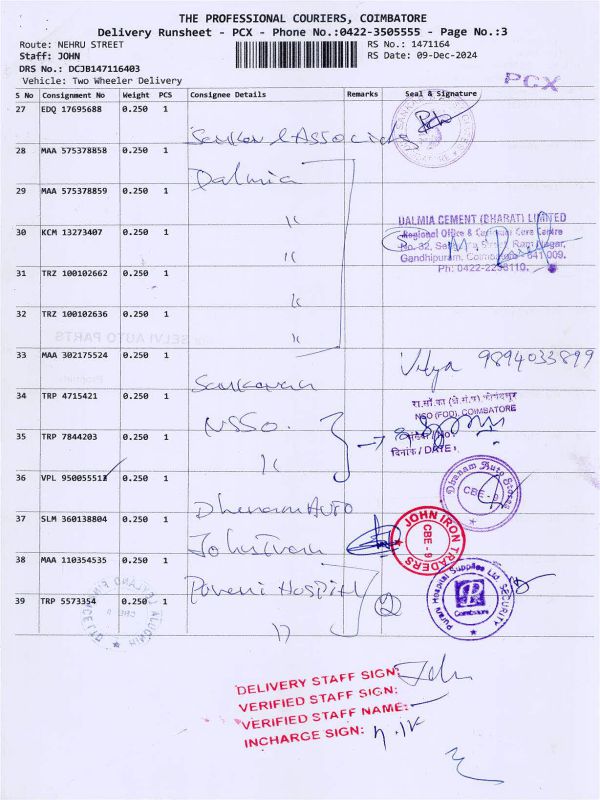 THE PROFESSIONAL COURIERS, COIMBATORE
Delivery Runsheet - PCX - Phone No.:0422-3505555 - Page No.:3
Route: NEHRU STREET RS No.: 1471164
Staff: JOHN RS Date: 09-Dec-2024
DRS No.: DCJB147116403
Vehicle: Two Wheeler Delivery
PCX
S No Consignment No Weight PCS Consignee Details Remarks Seal & Signature
27 EDQ 17695688 0.250 1
Sankar & Associates
28 MAA 575378858 0.250 1
Dalmia
29 MAA 575378859 0.250 1
"
DALMIA CEMENT (BHARAT) LIMITED
30 KCM 13273407 0.250 1
Regional Office & Customer Care Centre
No. 32, Ram Nagar,
"
Gandhipuram, Coimbatore - 641 009.
Ph: 0422-2256110.
31 TRZ 100102662 0.250 1
"
32 TRZ 100102636 0.250 1
SELVI AUTO PARTS
"
33 MAA 302175524 0.250 1
Vidya 9894033899
Sankaran
34 TRP 4715421 0.250 1
NSSO (FOD), COIMBATORE
NSSO.
35 TRP 7844203 0.250 1
दिनांक / DATE
"
36 VPL 950055513 0.250 1
Dhanam Auto Stores
CBE - 9
Dhanam Auto
37 SLM 360138804 0.250 1
JOHN IRON TRADERS
CBE - 9
John Iron
38 MAA 110354535 0.250 1
Purani Hospital Supplies Ltd SECURITY
Coimbatore
Pavani Hospital
39 TRP 5573354 0.250 1
2
"
DELIVERY STAFF SIGN: John
VERIFIED STAFF SIGN:
VERIFIED STAFF NAME:
INCHARGE SIGN: